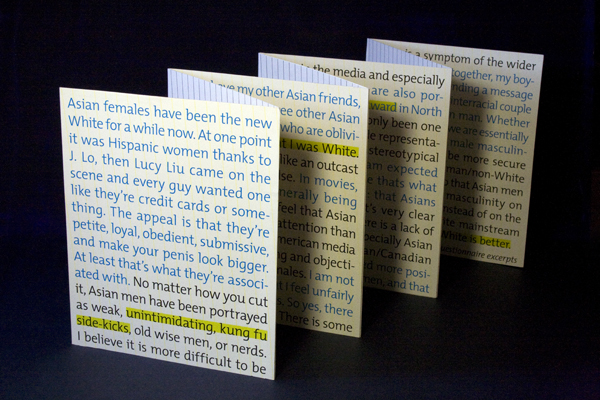 Asian females have been the new
White for a while now. At one point
it was Hispanic women thanks to
J. Lo, then Lucy Liu came on the
scene and every guy wanted one
like they're credit cards or some-
thing. The appeal is that they're
petite, loyal, obedient, submissive,
and make your penis look bigger.
At least that's what they're associ-
ated with. No matter how you cut
it, Asian men have been portrayed
as weak, unintimidating, kung fu
side-kicks, old wise men, or nerds.
I believe it is more difficult to be
my other Asian friends,
other Asian
who are oblivi-
I was White.
like an outcast
In movies,
being
feel that Asian
attention than
media
and objecti-
I am not
I feel unfairly
So yes, there
There is some
the media and especially
are also por-
in North
only been one
representa-
stereotypical
expected
thats what
that Asians
very clear
is a lack of
especially Asian
/Canadian
more posi-
and that
is a symptom of the wider
together, my boy-
a message
interracial couple
man. Whether
we are essentially
male masculin-
be more secure
/non-White
so that Asian men
masculinity on
instead of on the
mainstream
White is better.
excerpts